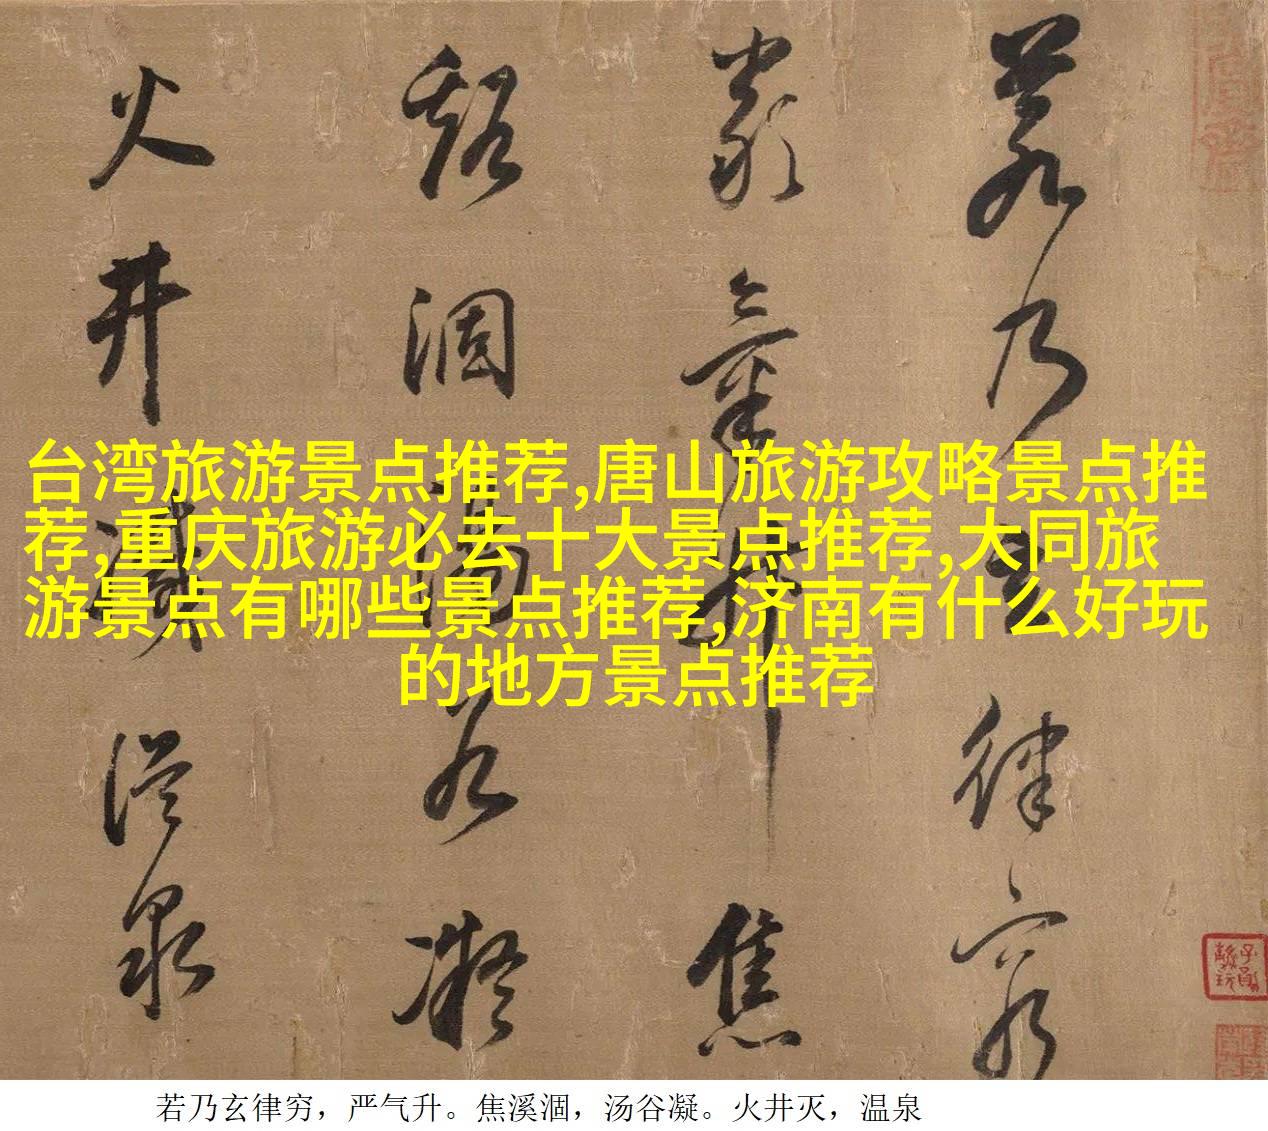 若乃玄律窮
嚴氣升焦
谿涸湯谷凝
火井滅溫泉
台湾旅游景点推荐,唐山旅游攻略景点推
荐,重庆旅游必去十大景点推荐,大同旅
游景点有哪些景点推荐,济南有什么好玩
的地方景点推荐
若乃玄律穷，严气升。焦溪涸，汤谷凝。火井灭，温泉